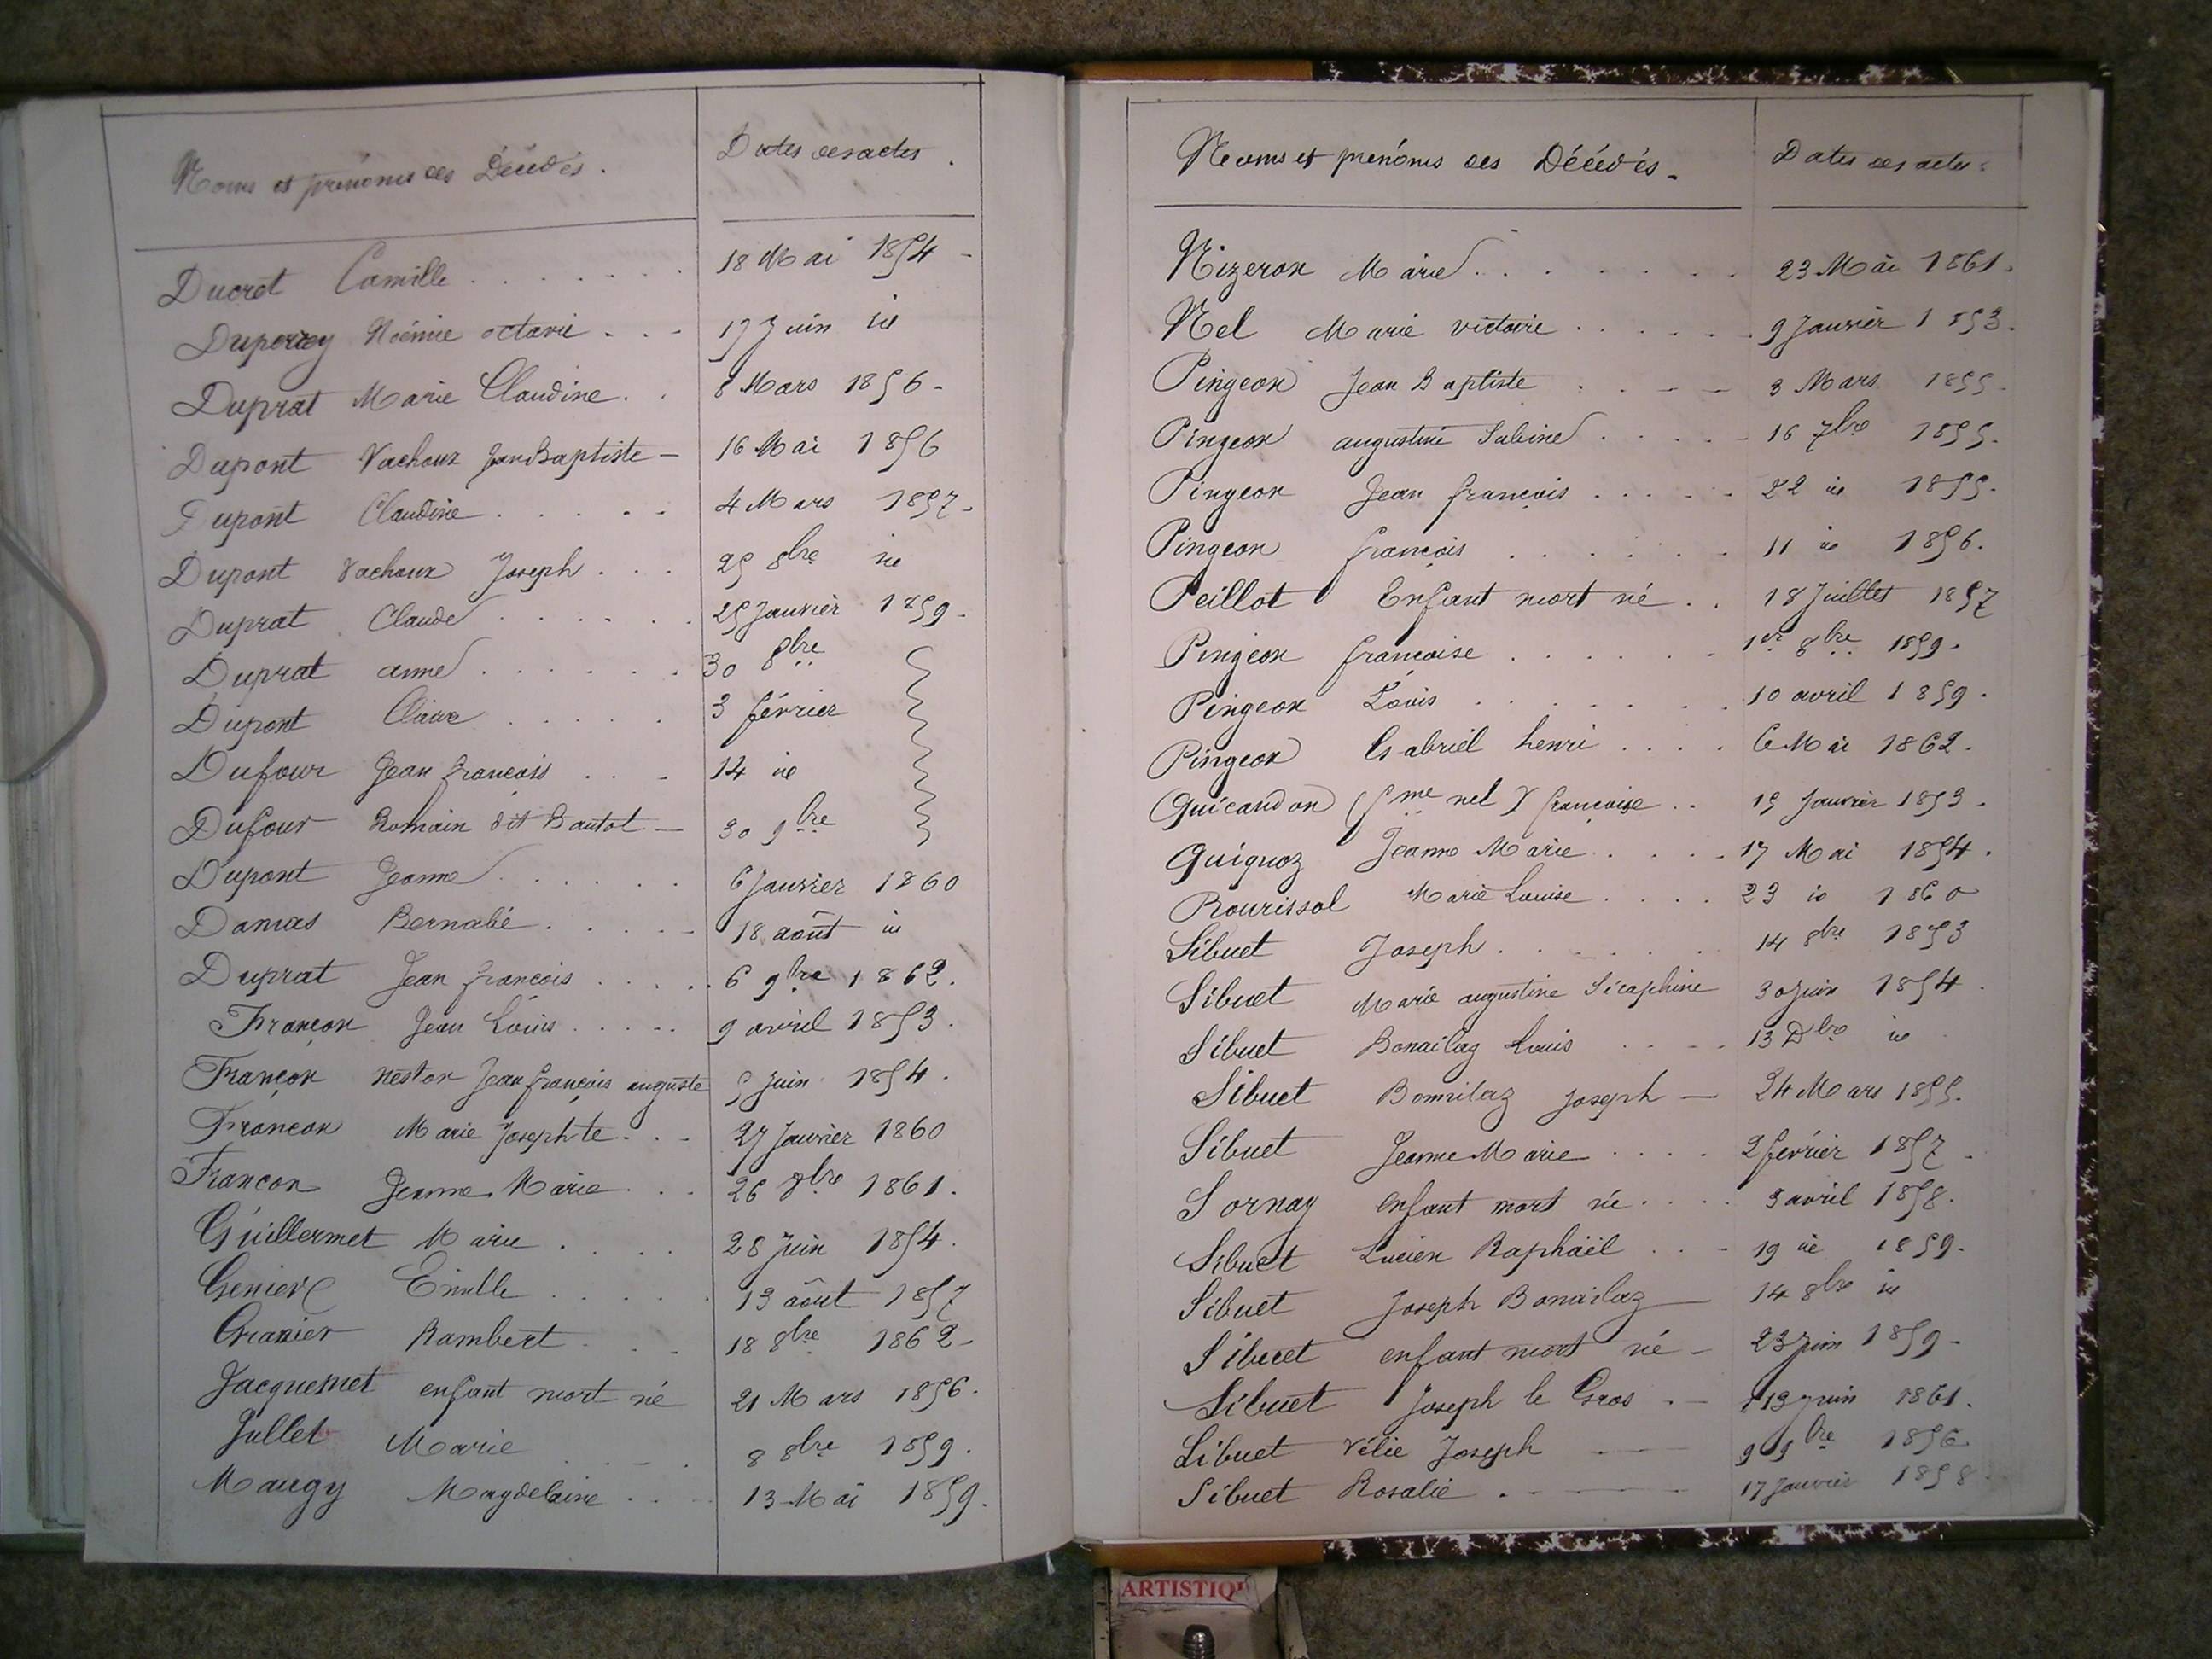 Noms et prénoms des Décédés. Dates des actes.
Ducret Camille 18 Mai 1854
Duperrey Noémie octavie 17 Juin id
Duprat Marie Claudine 8 Mars 1856
Dupont Vachoux Jean Baptiste 16 Mai 1856
Dupont Claudine 4 Mars 1857
Dupont Vachoux Joseph 25 8bre id
Duprat Claude 25 Janvier 1859
Duprat anne 30 8bre
Dupont Claire 3 février
Dufour Jean françois 14 id
Dufour Romain dit Bautot 30 9bre
Dupont Jeanne 6 Janvier 1860
Damas Bernabé 18 août id
Duprat Jean françois 6 9bre 1862.
Françon Jean Louis 9 avril 1853.
Françon nestor Jean françois auguste 5 Juin 1854.
Françon Marie Josephte 27 Janvier 1860
Françon Jeanne Marie 26 7bre 1861.
Guillermet Marie 28 Juin 1854.
Genier Emille 13 août 1857
Granier Rambert 18 8bre 1862
Jacquemet enfant mort né 21 Mars 1856.
Jullet Marie 8 8bre 1859.
Maugy Magdelaine 13 Mai 1859.
Noms et prénoms des Décédés. Dates des actes.
Nizeron Marie 23 Mai 1861.
Nel Marie victoire 9 Janvier 1853.
Pingeon Jean Baptiste 3 Mars 1855
Pingeon augustine Sabine 16 7bre 1855.
Pingeon Jean françois 22 id 1855.
Pingeon françois 11 id 1856.
Peillot Enfant mort né 18 Juillet 1857
Pingeon françoise 1er 8bre 1859.
Pingeon Louis 10 avril 1859.
Pingeon Gabriel henri 6 Mai 1862.
Guicandon (fme nel) françoise 15 Janvier 1853.
Guignoz Jeanne Marie 17 Mai 1854.
Rourissol Marie Louise 23 id 1860
Sibuet Joseph 14 8bre 1853
Sibuet Marie augustine Séraphine 30 Juin 1854.
Sibuet Bonailaz Louis 13 Dbre id
Sibuet Bonnilaz Joseph 24 Mars 1855.
Sibuet Jeanne Marie 2 février 1857
Sornay enfant mort né 3 avril 1858.
Sibuet Lucien Raphaël 19 id 1859.
Sibuet Joseph Bonailaz 14 8bre id
Sibuet enfant mort né 23 Juin 1859
Sibuet Joseph le Gros 13 Juin 1861.
Sibuet Vélie Joseph 9 9bre 1856
Sibuet Rosalie 17 Janvier 1858
ARTISTIQU